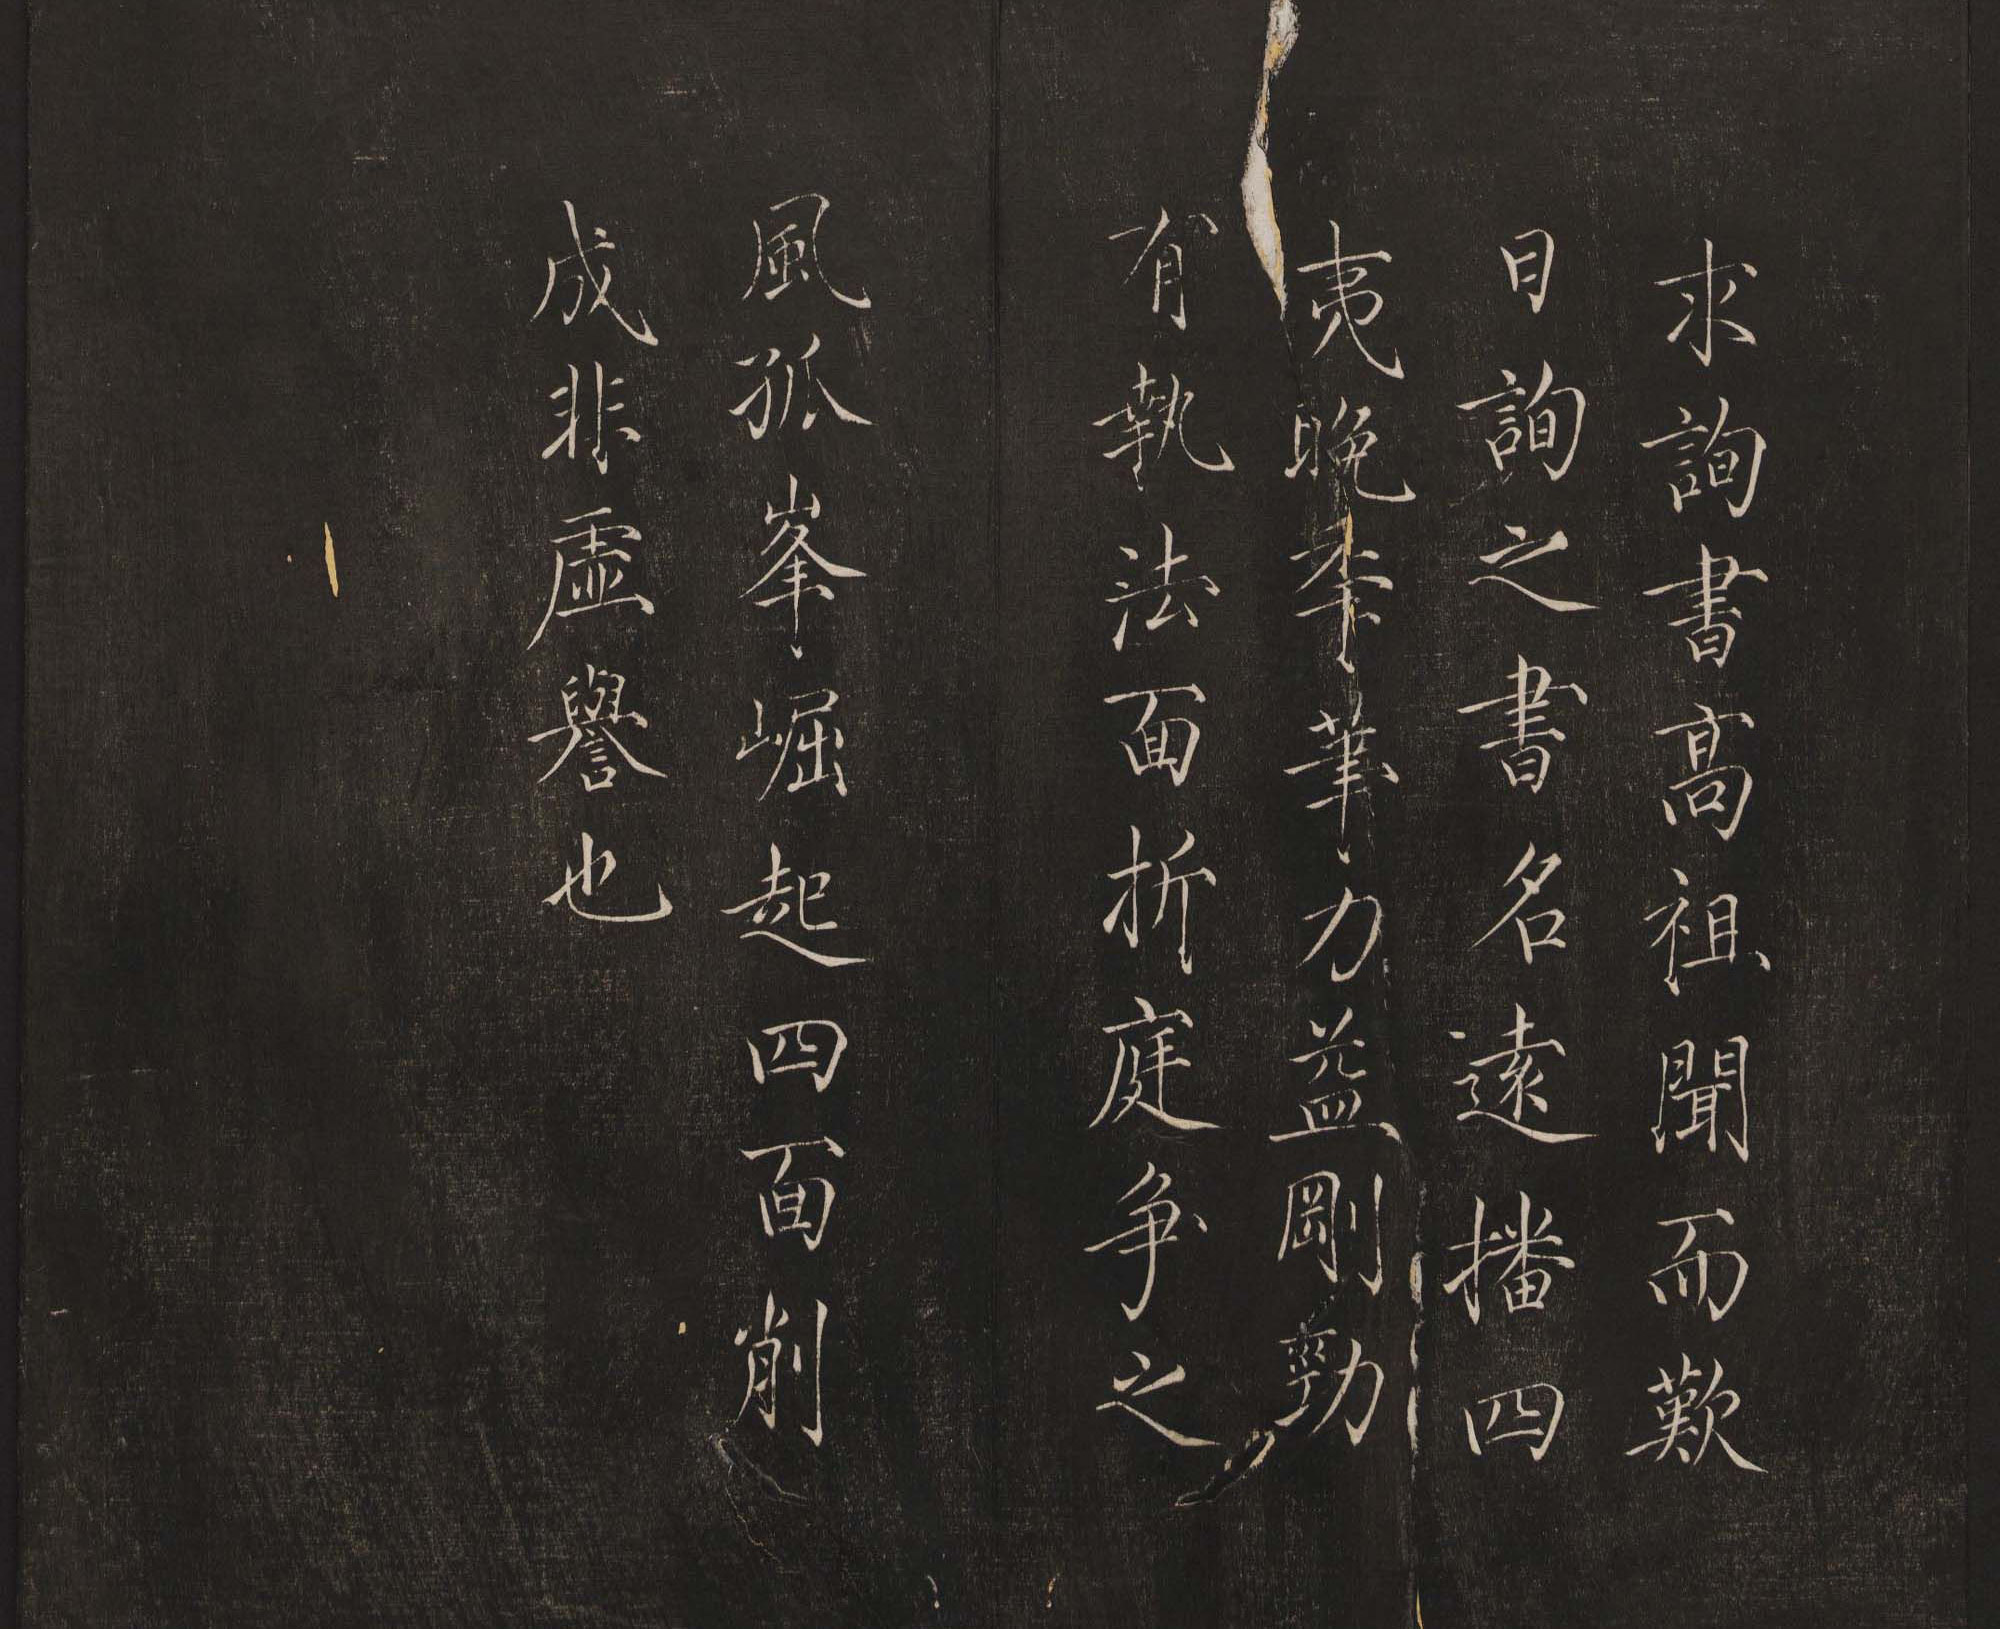 求詢書高祖聞而歎
曰詢之書名遠播四
夷晚季筆力益剛勁
有執法面折庭爭之
風孤峯崛起四面削
成非虛譽也